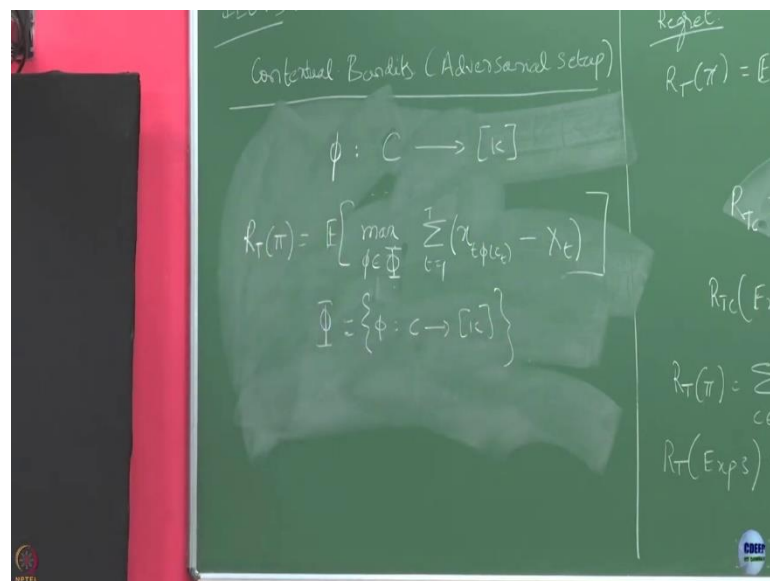 Contextual Bandits (Adversarial Setup)
ϕ : C → [K]
R_T(π) = E[ max_{ϕ∈Φ} Σ_{t=1}^{T} (x_{tϕ(c_t)} − X_t) ]
Φ = {ϕ : C → [K]}
Regret
R_T(π) = E
R_{TC}
R_{TC}(Ex
R_T(π) = Σ
R_T(Exp3)
NPTEL
CDEEP